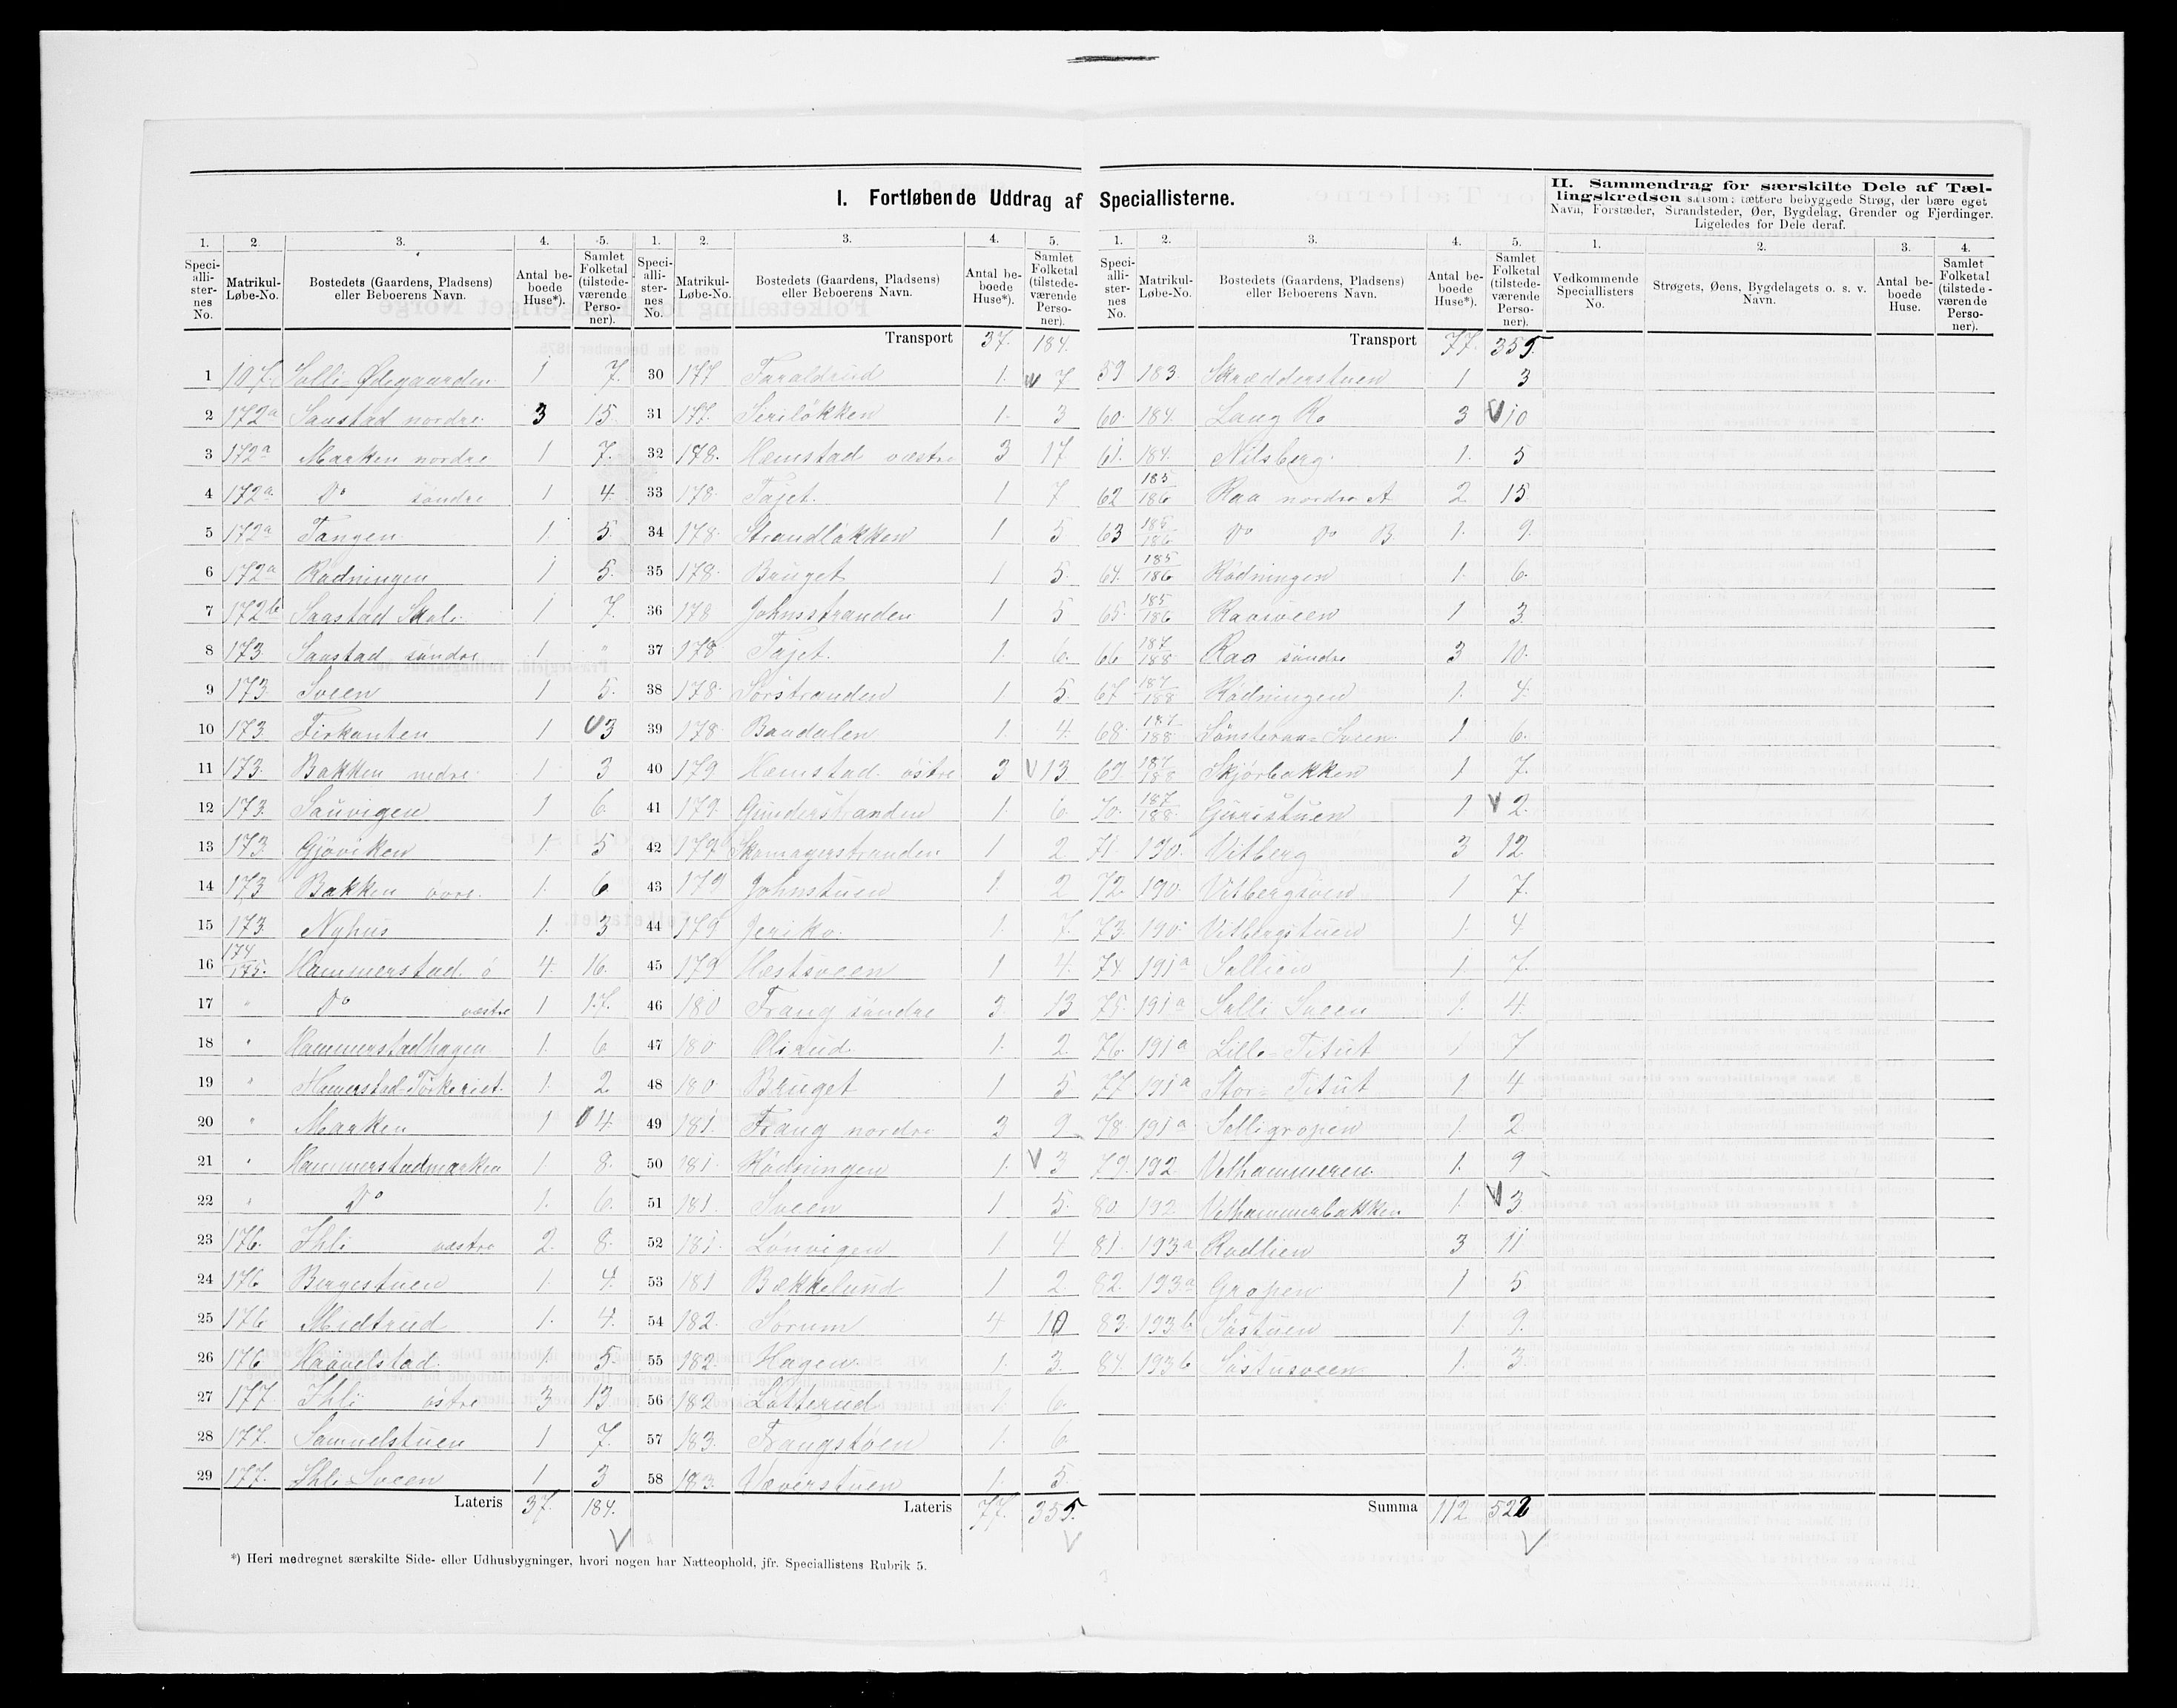 I. Fortløbende Uddrag af Speciallisterne.
II. Sammendrag for særskilte Dele af Tællingskredsen saasom: tættere bebyggede Strøg, der bære eget Navn, Forstæder, Strandsteder, Øer, Bygdelag, Grender og Fjerdinger. Ligeledes for Dele deraf.
1. 2 3. 4. 5. 1. 2. 3. 4. 5. 1. 2. 3. 4. 5. 1. 2. 3. 4.
Speciallisternes No. Matrikul-Løbe-No. Bostedets (Gaardens, Pladsens) eller Beboerens Navn. Antal beboede Huse*). Samlet Folketal (tilstedeværende Personer).
Speciallisternes No. Matrikul-Løbe-No. Bostedets (Gaardens, Pladsens) eller Beboerens Navn. Antal beboede Huse*). Samlet Folketal (tilstedeværende Personer).
Speciallisternes No. Matrikul-Løbe-No. Bostedets (Gaardens, Pladsens) eller Beboerens Navn. Antal beboede Huse*). Samlet Folketal (tilstedeværende Personer).
Vedkommende Speciallisters No. Strøgets, Øens, Bygdelagets o. s. v. Navn. Antal beboede Huse. Samlet Folketal (tilstedeværende Personer).
1 107. Solli Ødegaarden 1 7.
2 172a Saustad nordre 3 15
3 172a Marken nordre 1 7.
4 172a Do søndre 1 4.
5 172a Tangen 1 5.
6 172a Rødningen 1 5.
7 172b Saastad Skole 1 7.
8 173. Saustad søndre 1 "
9 173 Sveen 1 5.
10 173 Firkanten 1 3
11 173. Bakken nedre 1 3
12 173. Sauvigen 1 6.
13 173 Gjøviken 1 5
14 173 Bakken øvre. 1. 6
15 173 Nyhus 1. 3
16 174/175. Hammerstad ø 4. 16.
17 " Do vestre 1 17.
18 " Hammerstadhagen 1. 6
19 " Hamerstad-Tørkeriet 1. 2
20 " Marken 1 4.
21 " Hammerstadmarken 1. 8.
22 " Do 1. 6.
23 176. Ihle vestre 2. 8.
24 176 Bergestuen 1. 4.
25 176 Midtrud 1. 4.
26 176 Haavelstad 1. 5.
27 177 Ihle østre 3 13
28 177. Samuelstuen 1 7.
29 177. Ihle-Sveen 1 3
Lateris 37. 184.
Transport 37. 184.
30 177 Faraldrud 1. 7
31 177. Siriløkken 1. 3
32 178. Hæmstad vestre 3 17
33 178. Tajet. 1 7
34 178. Strandløkken 1 5
35 178. Bruget 1 5.
36 178 Johnsstranden 1 5
37 178 Tajet. 1. 6.
38 178. Sørstranden 1 5.
39 178 Baadalen 1. 4.
40 179 Hæmstad østre 3 13
41 179. Gunderstranden 1. 6.
42 179 Skomagerstranden 1 2
43 179 Johnstuen 1. 2
44 179 Jeriko 1. 7.
45 179 Hestsveen 1 4.
46 180 Frang søndre 3. 13
47 180 Olsrud 1. 2
48 180. Bruget 1 5
49 181. Frang nordre 3 9
50 181. Rødningen 1. 3
51 181. Sveen 1 5.
52 181. Lønvigen 1. 4
53 181 Bækkelund 1 2
54 182. Sorum 4 10
55 182. Hagen 1. 3.
56 182 Lotterud 1 6.
57 183. Frangstøen 1. 6
58 183. Væverstuen 1. 5.
Lateris 77. 355.
Transport 77. 355.
59 183. Skrædderstuen 1 3
60. 184. Laug Ro 3 10
61. 184. Nilsberg. 1. 5
62 185/186 Raa nordre A 2 15
63 185/186 Do Do B 1. 9.
64. 185/186 Rødningen 1. 6.
65. 185/186 Raasveen 1 3.
66 187/188 Raa søndre 3 10.
67 187/188 Rødningen 1. 4.
68. 187/188 Sønsteraa-Sveen 1 6.
69 187/188 Skjørbakken 1 7.
70. 187/188 Guristuen 1 2.
71. 190. Vitberg 3 12
72. 190. Vitbergsveen 1 7.
73. 190. Vitbergstuen 1. 4
74 191a Sollien 1. 7.
75. 191a Solli Sveen 1. 4.
76. 191a Lille-Titut 1 7
77 191a Stor-Titut 1 4
78. 191a Solligropen 1. 2
79. 192 Vethammeren 1. 9
80. 192 Vethammerbakken 1. 3
81. 193a Rudlien 3 11
82. 193a Gropen 1 5
83. 193b Søstuen 1. 9.
84. 193b Søstusveen 1. 3
Summa 112 522
*) Heri medregnet særskilte Side- eller Udhusbygninger, hvori nogen har Natteophold, jfr. Speciallistens Rubrik 5.